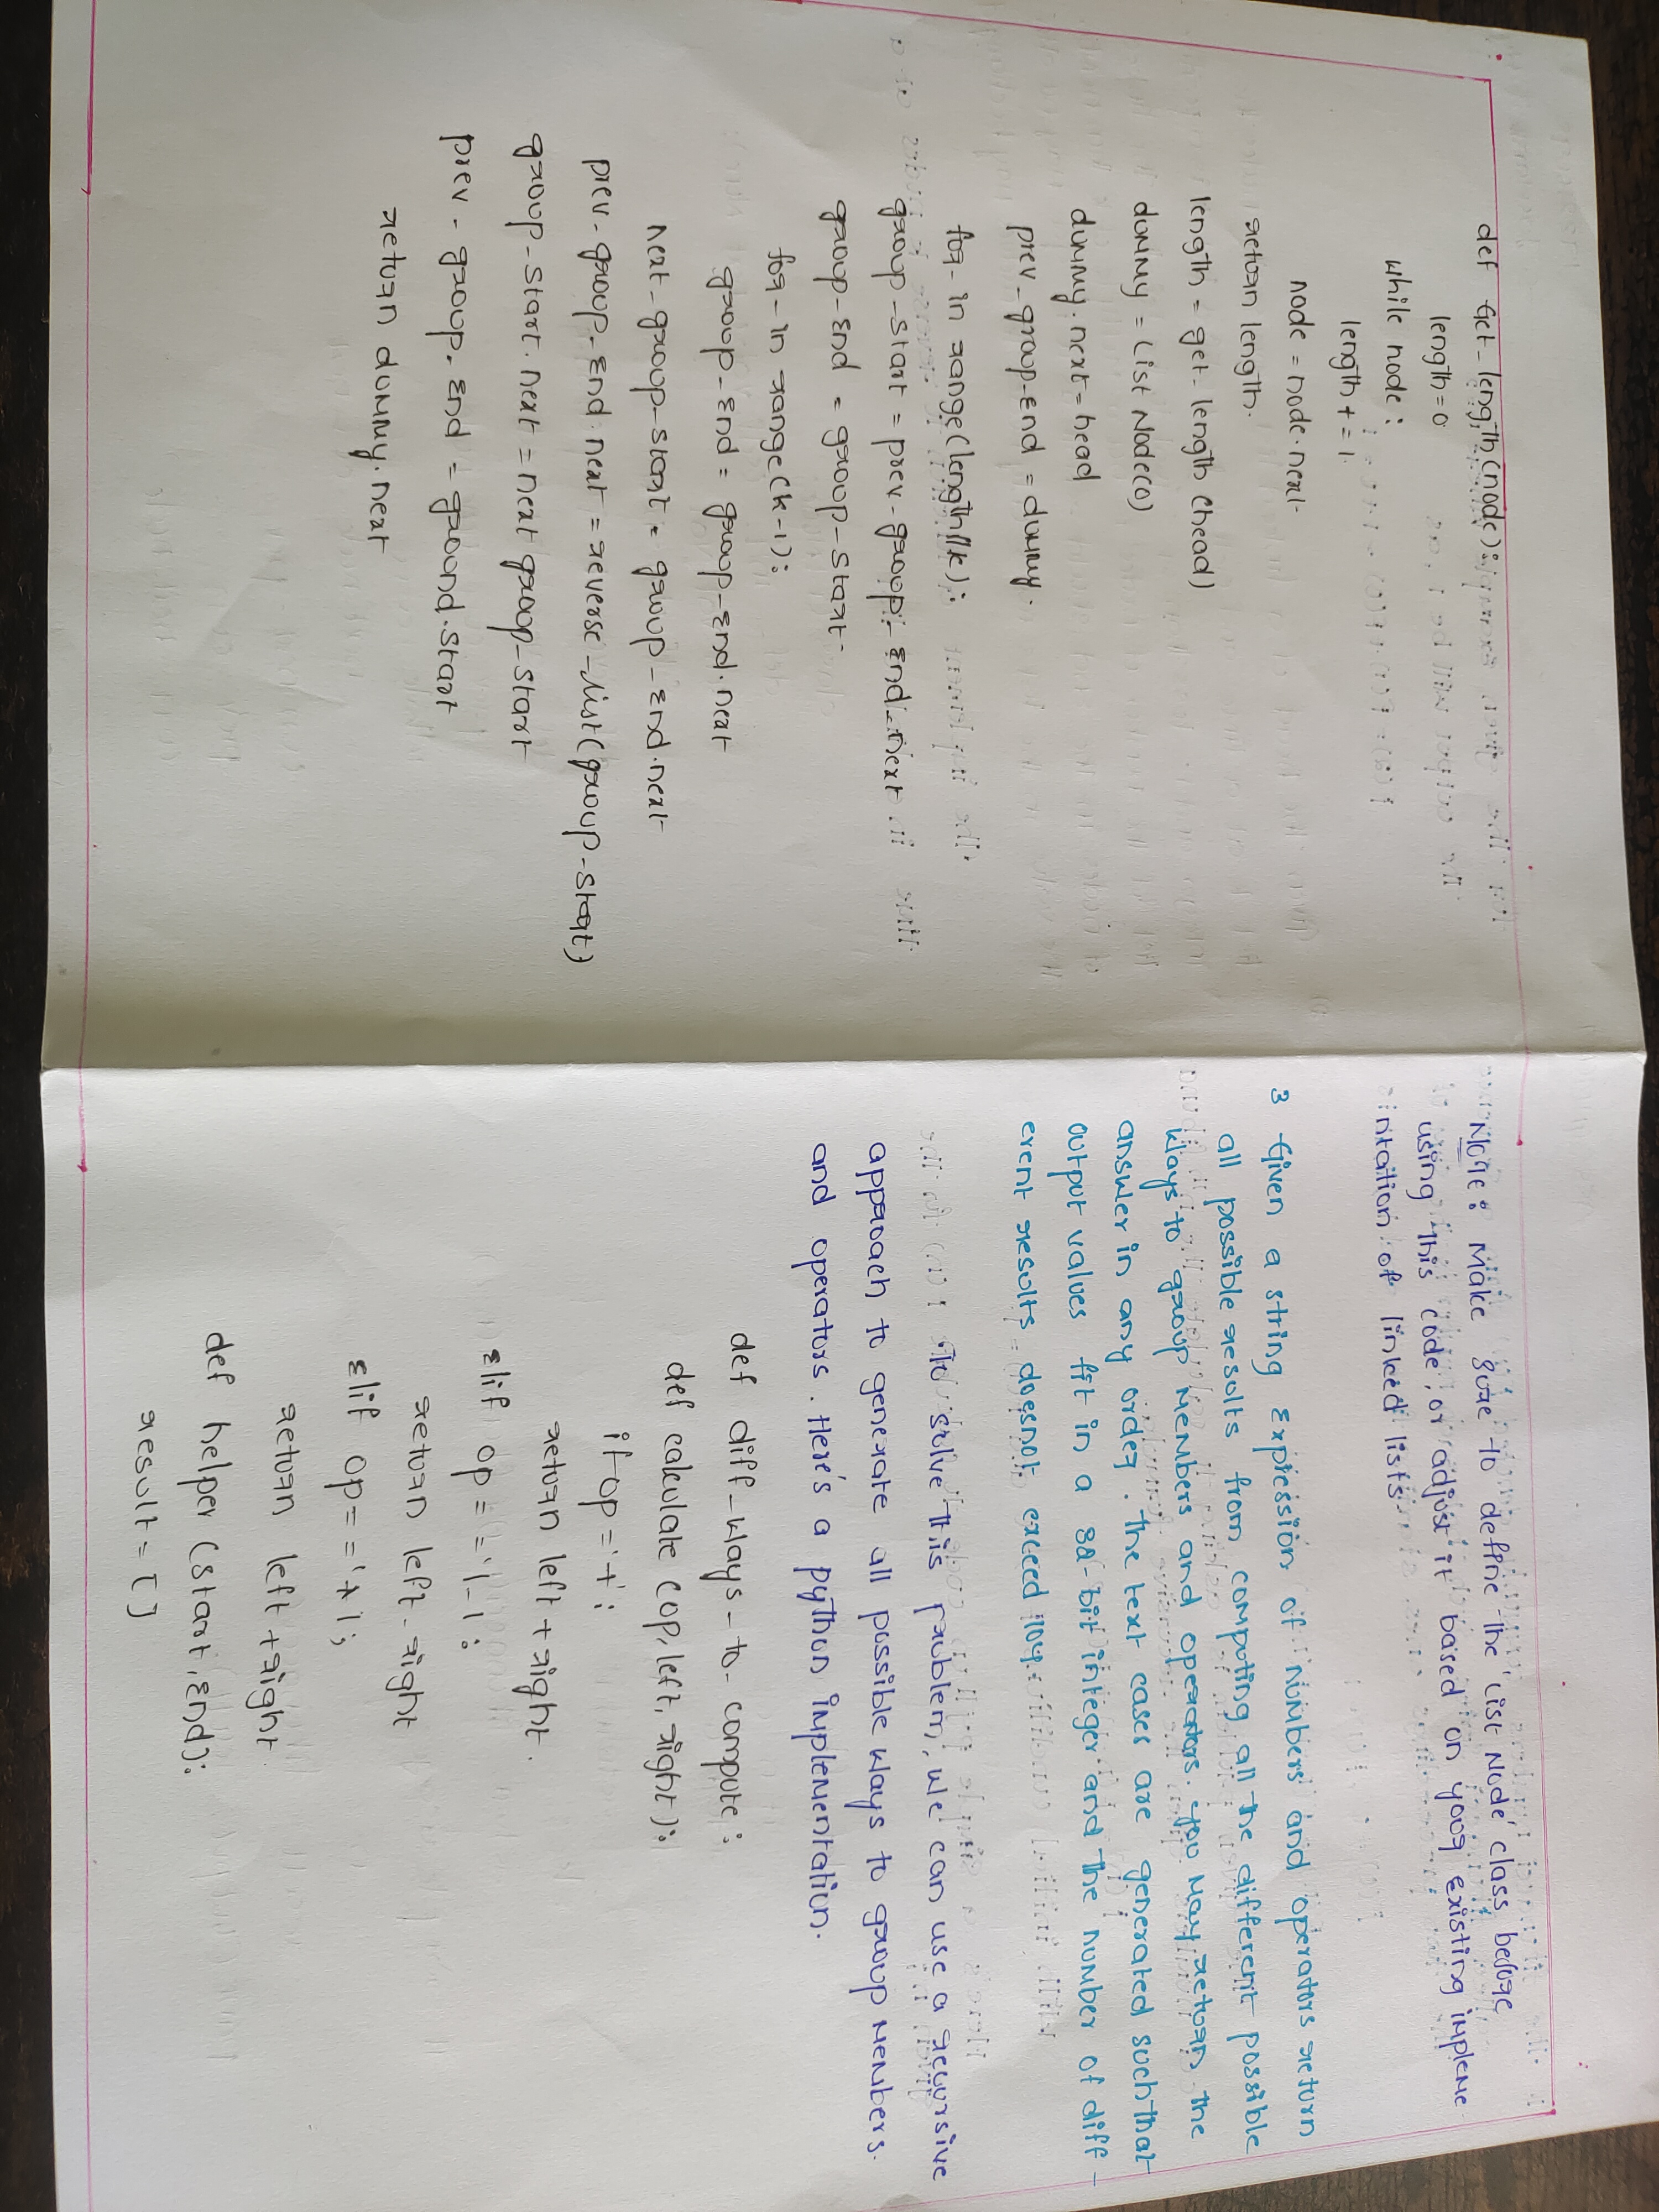 def Get-length(node):
length=0
while node:
length+=1.
node=node.next
return length.
length=get-length(head)
dummy=List Node(0)
dummy.next=head
prev-group-End=dummy.
for-in range(length//k):
group-start=prev-group-End-next
group-End=group-start
for-in range(k-1):
group-End=group-End.next
next-group-start=group-End.next
prev-group-End.next=reverse-list(group-start)
group-start.next=next group-start
prev-group.End=ground.start
return dummy.next
Note: Make sure to define the 'List Node' class before
using this code, or adjust it based on your existing impleme
ntation of linked lists
3 Given a string Expression of numbers and operators return
all possible results from computing all the different possible
ways to group members and operators. You may return the
answer in any order. The text cases are generated such that
output values fit in a 32-bit integer and the number of diff-
erent results doesnot exceed 10y.
To solve this problem, we can use a recursive
approach to generate all possible ways to group members.
and operators. Here's a python implementation.
def diff-ways-to-compute:
def calculate (op,left,right):
if op='+':
return left+right.
Elif op=='-':
return left-right
Elif op=='*';
return left+right.
def helper (start,End):
result=[]